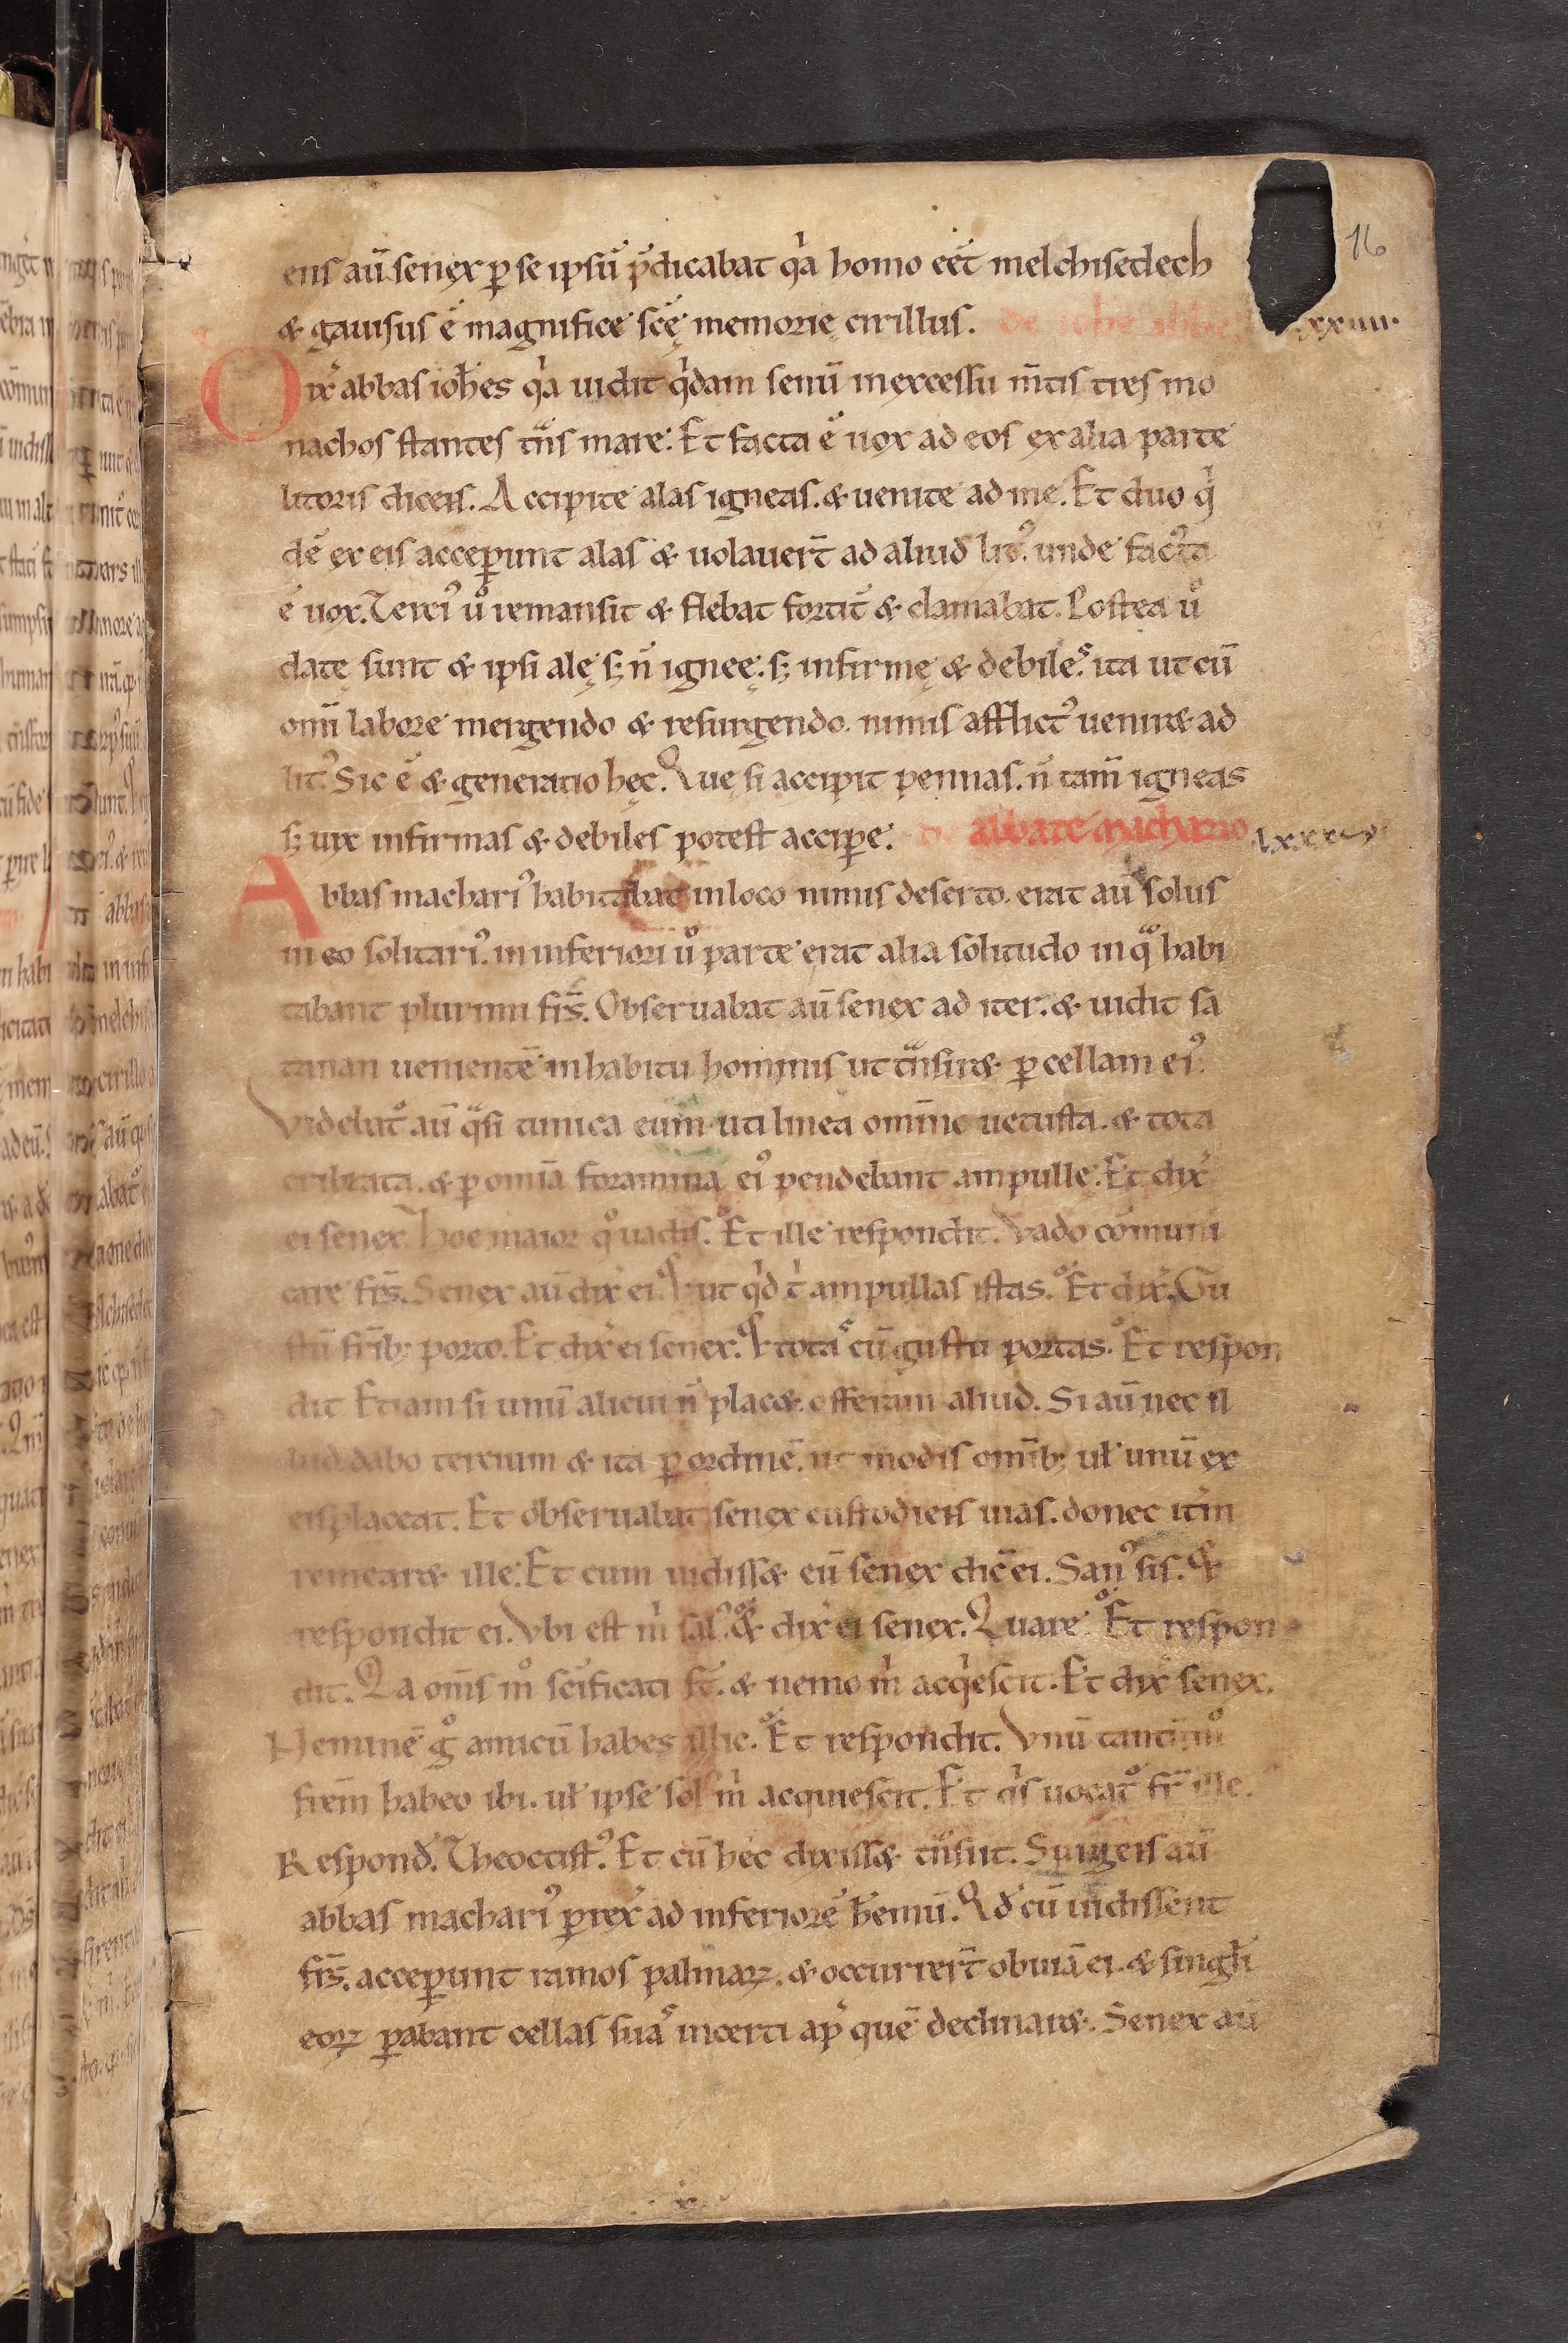 16
ens aū. senex ꝑ se ipsū p̄dicabat qa homo eēt melchisedech
& gauisus ē magnifice scē memorię cirillus. de iohe abbate xxiiii.
Dix̄ abbas ioh̄es qa uidit qdam senū in excessu m̄tis tres mo
nachos stantes tn̄s mare. Et facta ē uox ad eos ex alia parte
litoris dicens. Accipite alas igneas. & uenite ad me. Et duo q
dē ex eis acceꝑunt alas & uolauer̄t ad aliud lit᾽. unde facta
ē uox. Terci᾽ u͛o remansit & flebat fortit̄ & clamabat. Postea u͛o
datę sunt & ipsi alę sꝫ n̄ ignee. sꝫ infirmę & debiles. ita ut cū
om̄i labore mergendo & resurgendo. nimis afflict᾽ ueniret ad
lit᾽. Sic ē & generatio hęc. Que si accipit pennas. n̄ tam̄ igneas
sꝫ uix infirmas & debiles potest acciꝑe. de abbate machario lxxxv
Abbas machari᾽ habitabat in loco nimis deserto. erat aū solus
in eo solitari᾽. in inferiori u͛o parte erat alia solitudo in qua habi
tabant plurimi fr̄s. Obseruabat aū senex ad iter. & uidit sa
tanan uenientē in habitu hominis ut tn̄siret ꝑ cellam ei᾽.
Videbat᾽ aū qsi tunica eum uti linea omīno uetusta. & tota
cribrata. & ꝑ omīa foramina ei᾽ pendebant ampulle. Et dix̄
ei senex. Hoe maior qͦ uadis. Et ille respondit. Vado cōmuni
care fr̄s. Senex aū dix̄ ei. Et ut qd t͛ ampullas istas. Et dix̄. Gu
stū fr̄ibꝫ porto. Et dix̄ ei senex. Et totas cū gustu portas. Et respon
dit. Etiam si unū alicui n̄ placet. offeram aliud. Si aū nec il
lud. dabo tercium & ita ꝑ ordinē. ut modis om̄ibꝫ uł unū ex
eis placeat. Et obseruabat senex custodiens uias. donec itm̄
remearet ille. Et cum uidisset eū senex dic̄ ei. San᾽ sis. Et
respondit ei. Vbi est m͛ sal᾽. Et dix̄ ei senex. Quare. Et respon
dit. Qa om̄s mͦ sc̄ificati st̄. & nemo m͛ acqescit. Et dix̄ senex.
Neminē gͦ amicū habes illic. Et respondit. Vnū tantūmͦ
frem̄ habeo ibi. uł ipse sol᾽ m͛ acquiescit. Et qs uocat᾽ fr̄ ille.
Respond̄. Theoctist᾽. Et cū hec dixisset tn̄siit. Surgens aū
abbas machari᾽ ꝑrex̄ ad inferiorē h̄emū. Qd cū uidissent
fr̄s. acceꝑunt ramos palmaꝝ. & occurrer̄t obuiā ei. & singłi
eoꝝ ꝑabant cellas suas incerti ap̄ quē declinaret. Senex aū